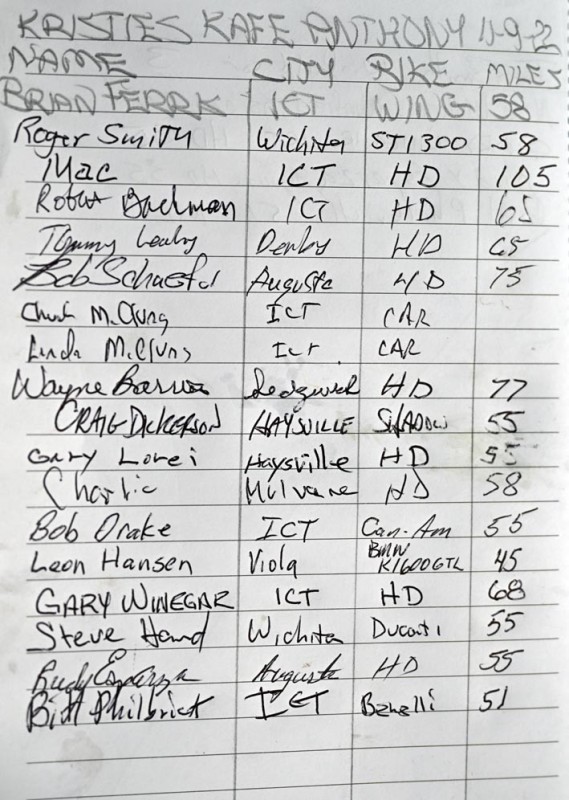 KRISTIES KAFE ANTHONY 11-9-2
NAME CITY BIKE MILES
BRIAN FERRK ICT WING 58
Roger Smith Wichita ST1300 58
Mac ICT HD 105
Robert Backman ICT HD 65
Tommy Leahy Derby HD 65
Bob Schaefer Augusta HD 75
Chuck McClung ICT CAR
Linda McClung ICT CAR
Wayne Sedgwick HD 77
CRAIG DICKERSON HAYSVILLE SHADOW 55
Gary Lorei Haysville HD 55
Charlie Mulvane HD 58
Bob Drake ICT Can-Am 55
Leon Hansen Viola BMW K1600GTL 45
GARY WINEGAR ICT HD 68
Steve Hand Wichita Ducati 55
Rudy Esparza Augusta HD 55
Bill Philbrick ICT Benelli 51